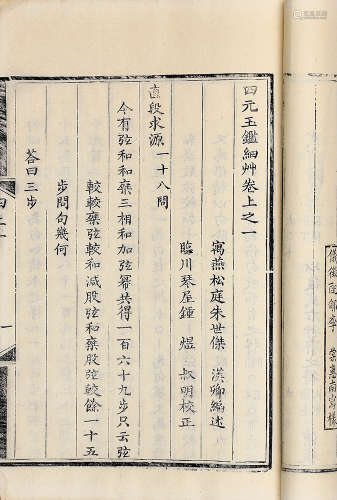 四元玉鑑細艸卷上之一
寓燕松庭朱世傑 漢卿編述
臨川琴屋鍾煜 叔明校正
直段求源一十八問
今有弦和和乘三相和加弦冪共得一百六十九步只云弦
較較乘弦較和減股弦和乘股弦較餘一十五
步問句幾何
荅曰三步